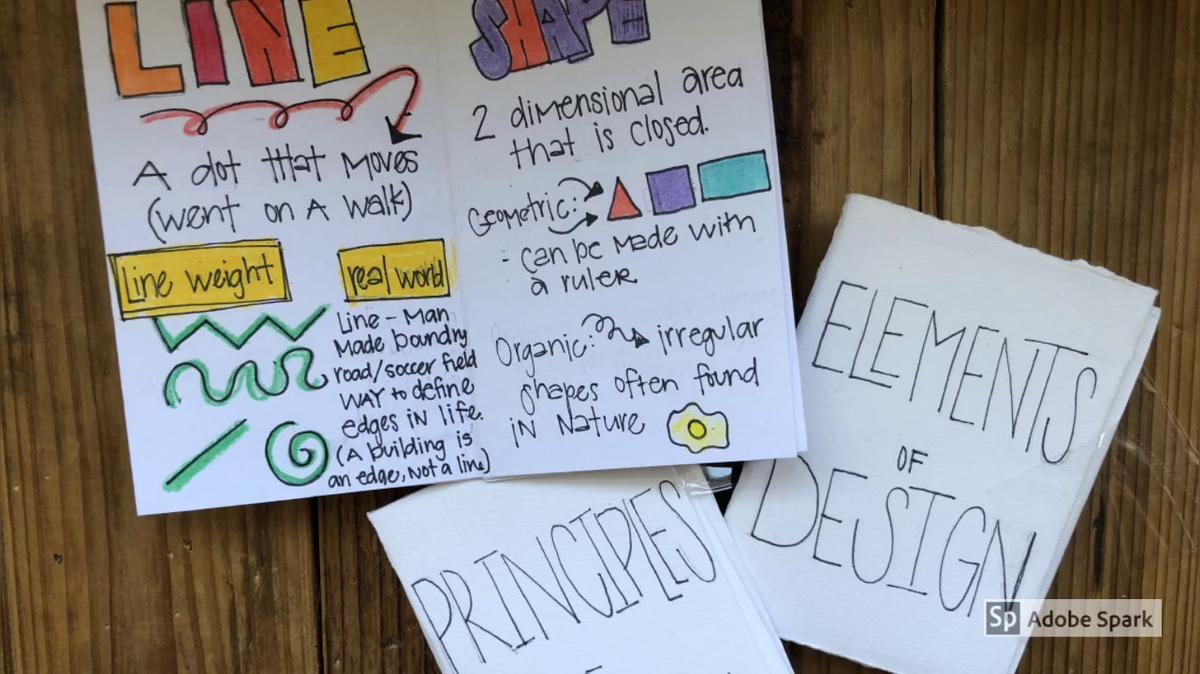 LINE
A dot that moves
(went on A walk)
Line weight
real world
Line - Man
Made boundry
road/soccer field
WAY to define
edges in life.
(A building is
an edge, Not a line)
SHAPE
2 dimensional area
that is closed.
Geometric:
= can be made with
a ruler
Organic: irregular
shapes often found
in Nature
ELEMENTS
OF
DESIGN
PRINCIPLES
Sp Adobe Spark